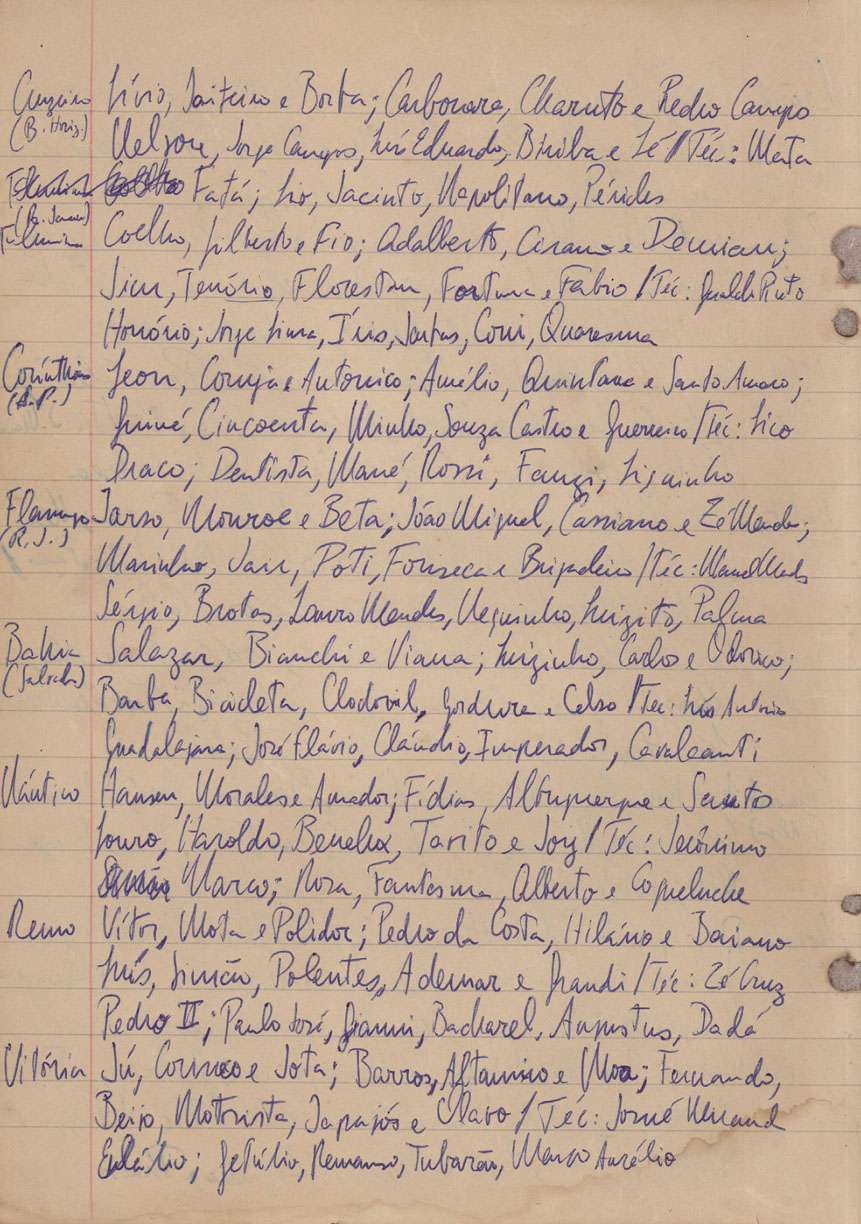 Cruzeiro Lívio, Jaiteiro e Borba; Carbonara, Charuto e Pedro Campo
(B. Horiz.) Nelson, Jorge Campos, Luís Eduardo, Biriba e Zé / Téc: Mata
Fatá; Lio, Jacinto, Napolitano, Péricles
(R. Janeiro)
Fluminense Coelho, Gilberto e Fio; Adalberto, Cirano e Demian;
Jim, Tenório, Florestan, Fortuna e Fábio / Téc: Pinto
Honório; Jorge Lima, Íris, Jartas, Cori, Quaresma
Corínthians Leon, Coruja e Antonico; Amélio, Quintana e Santo Amaro;
(S.P.) Guiné, Cincoenta, Minho, Souza Castro e Guerreiro / Téc: Lico
Draco; Dentista, Mané, Rossi, Fangi, Liguinho
Flamengo Tarso, Monroe e Beta; João Miguel, Cassiano e Zé Mendes;
(R.J.) Marinho, Jan, Poti, Fonseca e Brigadeiro / Téc:
Sérgio, Brotas, Lauro Mendes, Neguinho, Luizito, Palma
Bahia Salazar, Bianchi e Viana; Luizinho, Carlos e Odorico;
(Salvador) Barba, Bicicleta, Clodovil, Gordura e Celso / Téc: Luís Antonio
Guadalajara; José Flávio, Cláudio, Imperador, Cavalcanti
Náutico Hansen, Morales e Amador; Fídias, Albuquerque e Santos
Louro, Haroldo, Benelux, Tarito e Joy / Téc: Jerônimo
Marco; Rosa, Fantasma, Alberto e Coqueluche
Remo Vítor, Mota e Polidor; Pedro da Costa, Hilário e Baiano
Luís, Simão, Polentes, Ademar e Grandi / Téc: Zé Cruz
Pedro II; Paulo José, Gianni, Bacharel, Augustus, Dadá
Vitória Jú, Corneo e Jota; Barros, Altamiro e Moa; Fernando,
Beijo, Motorista, Tapajós e Clavo / Téc: Josué
Eulálio; Getúlio, Remanso, Tubarão, Marco Aurélio